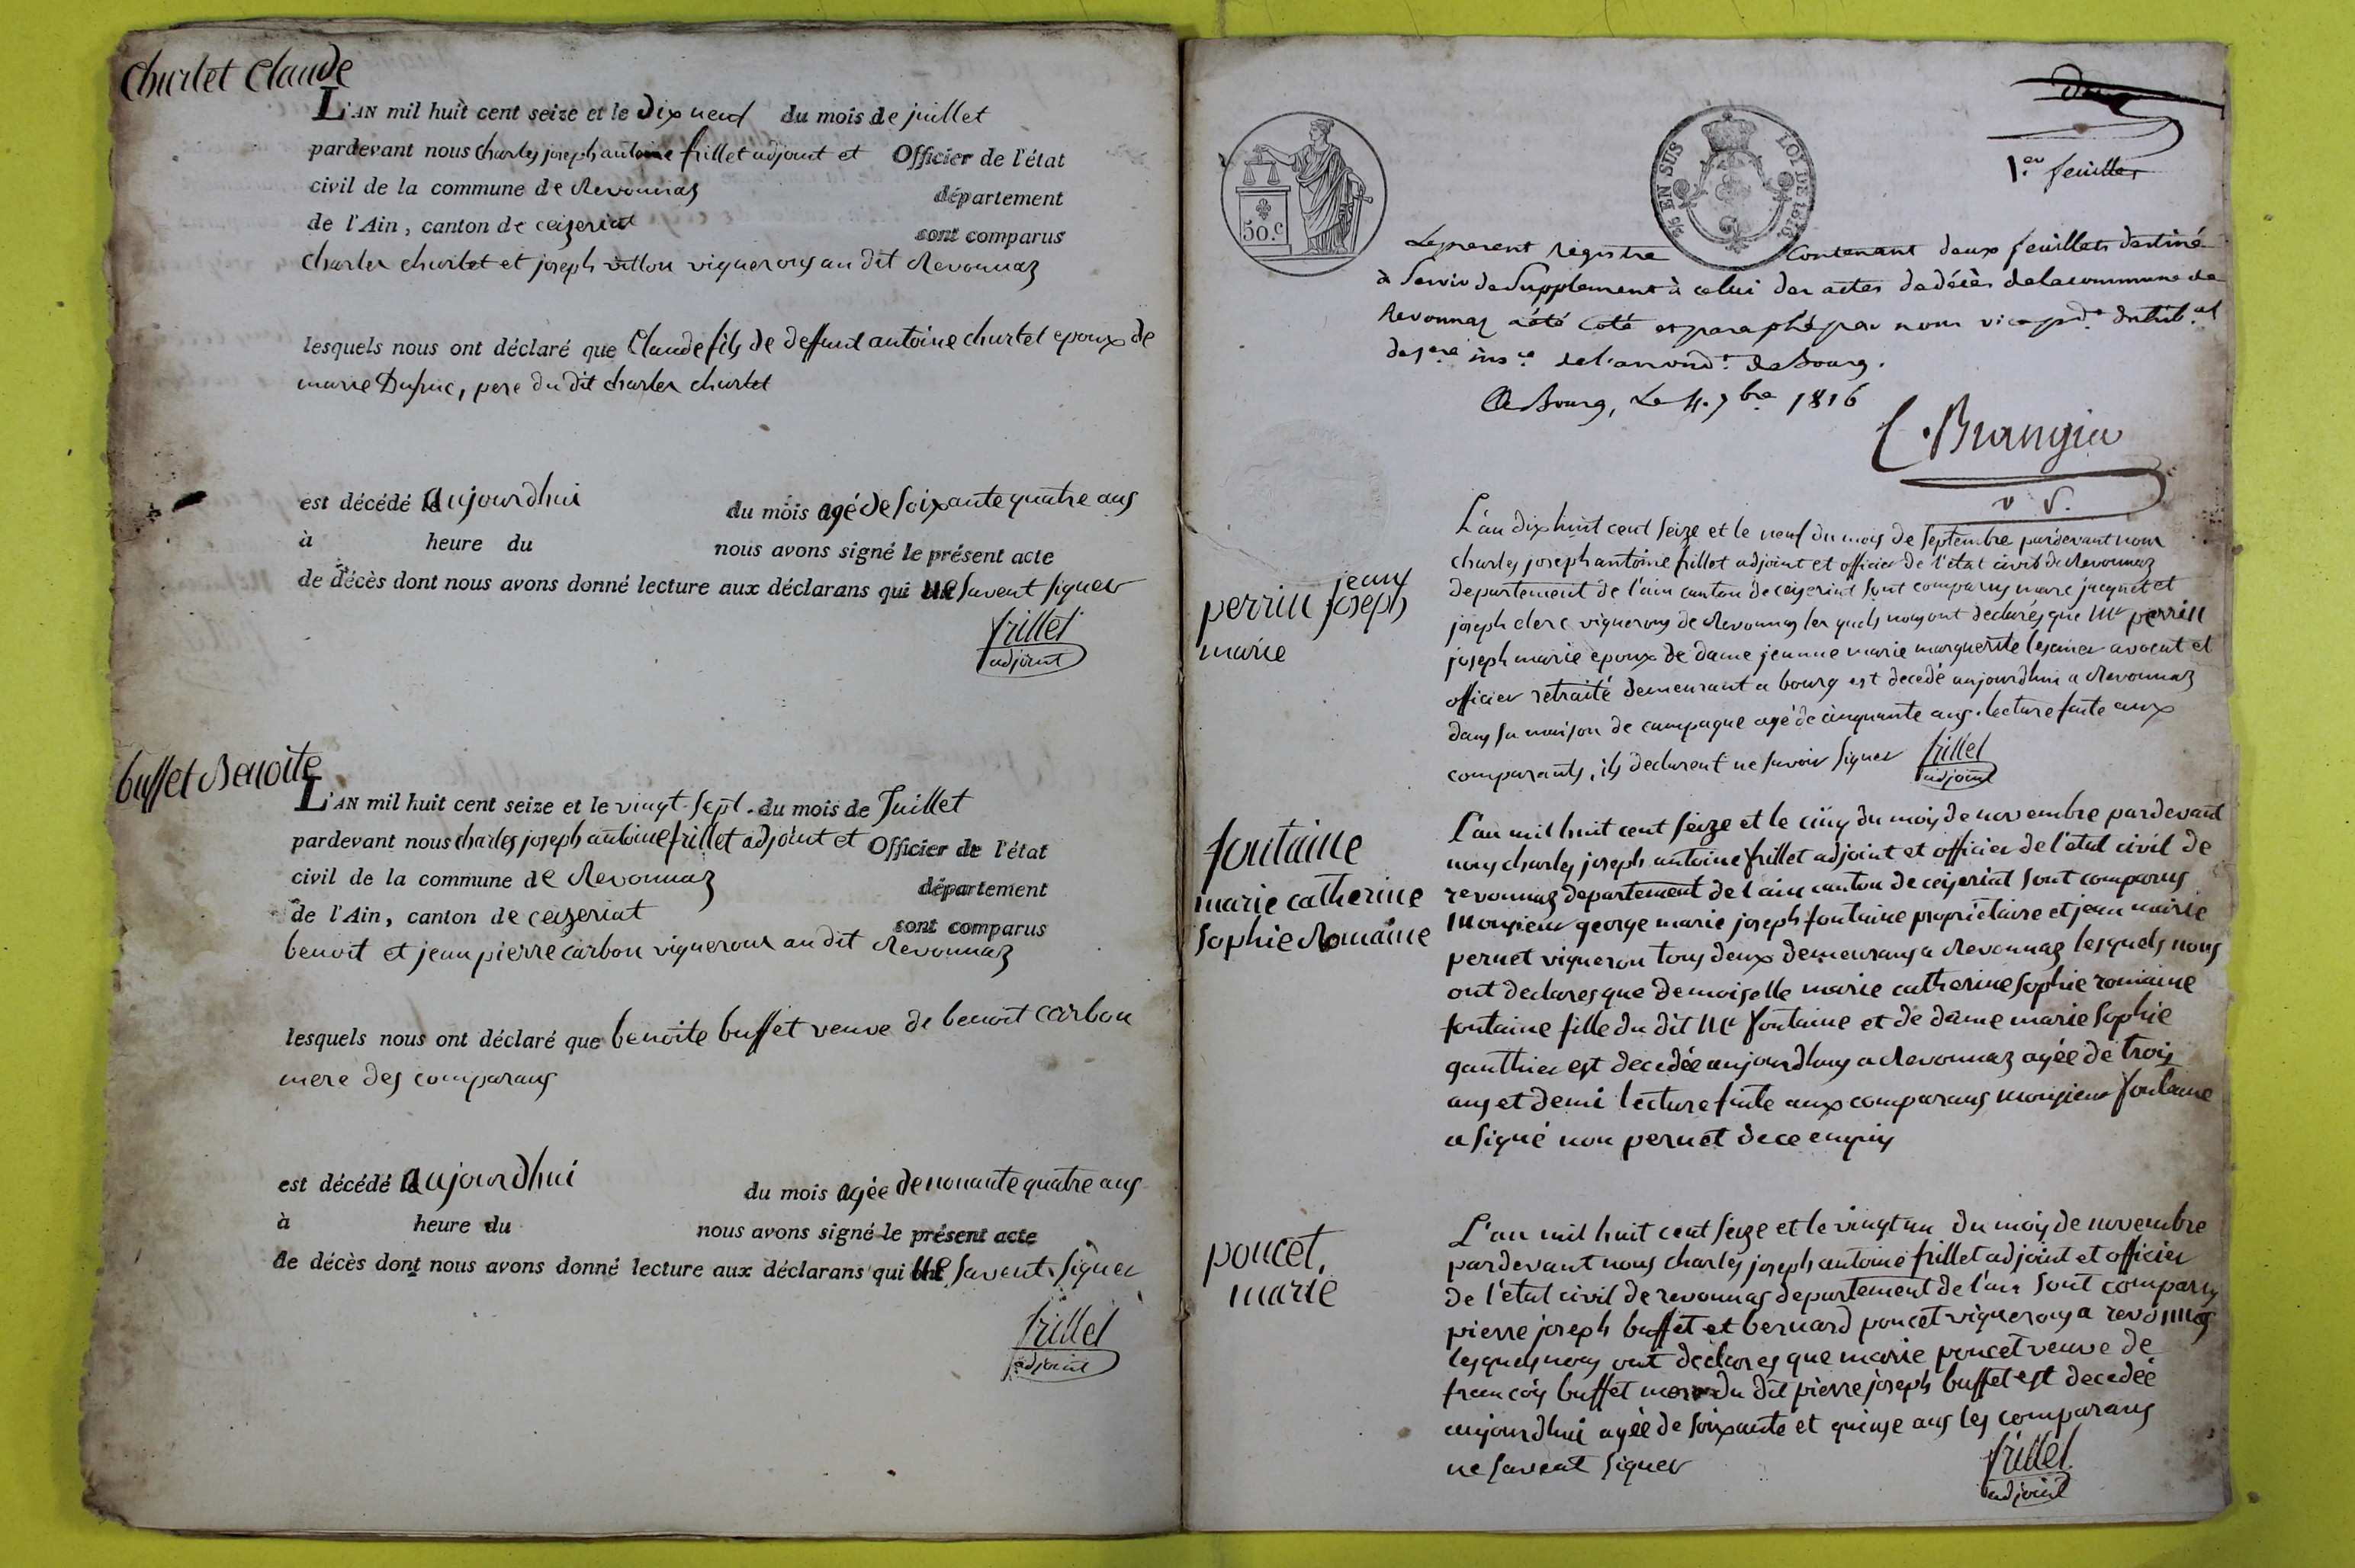 Churlet Claude
L'AN mil huit cent seize et le dix neuf du mois de juillet
pardevant nous charles joseph antoine frillet adjoint et Officier de l'état
civil de la commune de Revonnaz département
de l'Ain, canton de ceizeriat sont comparus
charles churlet et joseph villon vignerons au dit Revonnaz
lesquels nous ont déclaré que Claude fils de deffunt antoine churlet epoux de
marie Dufour, pere du dit charles churlet
est décédé aujourdhui du mois agé de soixante quatre ans
à heure du nous avons signé le présent acte
de décès dont nous avons donné lecture aux déclarans qui ne savent signer
frillet
adjoint
buffet Benoite
L'AN mil huit cent seize et le vingt-sept du mois de Juillet
pardevant nous charles joseph antoine frillet adjoint et Officier de l'état
civil de la commune de Revonnaz département
de l'Ain, canton de ceizeriat sont comparus
benoit et jean pierre carbon vignerons au dit Revonnaz
lesquels nous ont déclaré que benoite buffet veuve de benoit carbon
mere des comparans
est décédé aujourdhui du mois agée de nonante quatre ans
à heure du nous avons signé le présent acte
de décès dont nous avons donné lecture aux déclarans qui ne savent signer
frillet
adjoint
1.er feuillet
50.C
EN SUS LOI DE 1816
Le present Registre Contenant deux feuillets destiné
à Servir de Supplement à celui des actes de décès de la commune de
Revonnaz a été Coté et paraphé par nous vice pd.t du trib.al
de p.ere ins.ce de l'arrond.t de Bourg.
A Bourg, Le 4. 7bre 1816
C. Brangier
v p.
perrin jean joseph
marie
L'an dix huit cent seize et le neuf du mois de septembre pardevant nous
charles joseph antoine frillet adjoint et officier de l'état civil de Revonnaz
departement de l'ain canton de ceizeriat sont comparus marc jacquet et
joseph clerc vignerons de Revonnaz les quels nous ont declarés que Mr perrin
joseph marie epoux de dame jeanne marie marguerite avocat et
officier retraité demeurant a bourg est decedé aujourdhui a Revonnaz
dans sa maison de campagne agé de cinquante ans. lecture faite aux
comparants, ils declarent ne savoir signer frillet
adjoint
fontaine
marie catherine
Sophie Romaine
L'an mil huit cent seize et le cinq du mois de novembre pardevant
nous charles joseph antoine frillet adjoint et officier de l'état civil de
revonnaz departement de l'ain canton de ceizeriat sont comparus
monsieur george marie joseph fontaine proprietaire et jean marie
pernet vigneron tous deux demeurans a Revonnaz lesquels nous
ont declares que demoiselle marie catherine sophie romaine
fontaine fille du dit Mr fontaine et de dame marie sophie
gauthier est decedée aujourdhuy a Revonnaz agée de trois
ans et demi lecture faite aux comparans monsieur fontaine
a signé non pernet de ce enquis
poncet,
marie
L'an mil huit cent seize et le vingt un du mois de novembre
pardevant nous charles joseph antoine frillet adjoint et officier
de l'état civil de revonnas departement de l'ain sont comparus
pierre joseph buffet et bernard poncet vignerons a revonnas
lesquels nous ont declares que marie poncet veuve de
francois buffet mere du dit pierre joseph buffet est decedée
aujourdhui agée de soixante et quinze ans les comparans
ne savent signer
frillet
adjoint